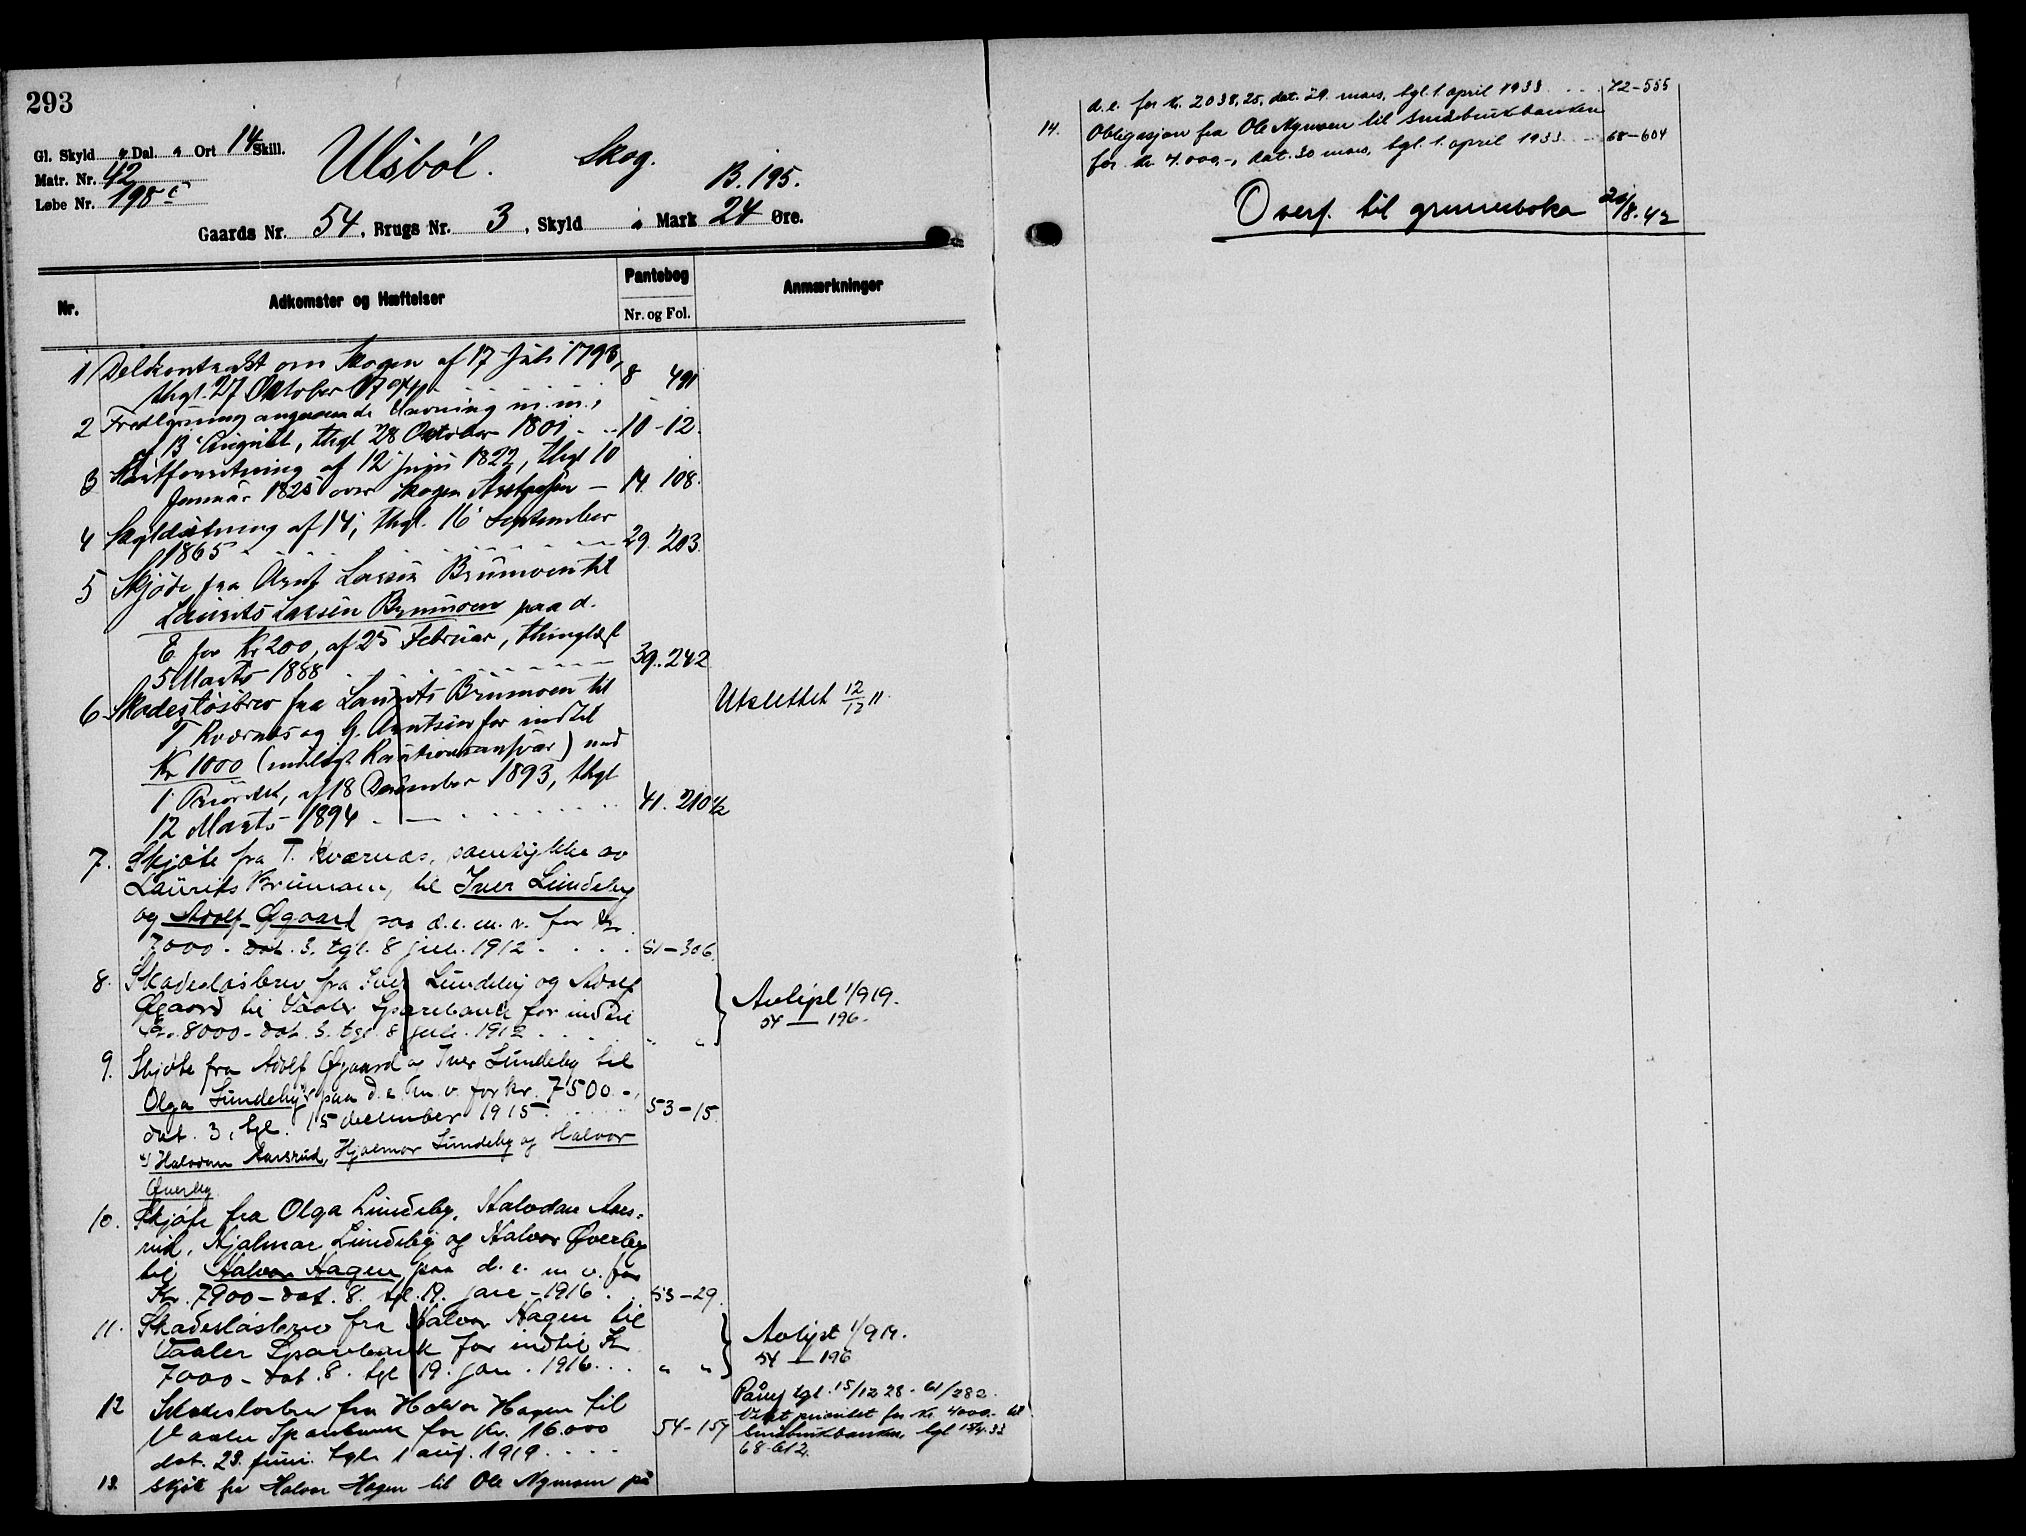 293
Gl. Skyld " Dal. " Ort 14 Skill.
Matr. Nr. 42
Løbe Nr. 198 c
Ulsböl. Skog.
B. 195.
Gaards Nr. 54, Brugs Nr. 3, Skyld " Mark 24 Øre.
Nr. Adkomster og Hæftelser Pantebog Anmærkninger
Nr. og Fol.
1 Delekontrakt om Skogen af 17 Juli 1798,
thgl. 27 Oktober 8 491
2 Fredlysning angaaende Havning m.m.,
af 13 August, thgl 28 Oktober 1801 - 10-12.
3 af 12 Juni 1822, thgl 10
Januar 1825 over Skogen - 14. 108.
4 Skyldsætning af 14, thgl. 16 September
1865 29. 203.
5 Skjøde fra Larsen Brumoen til
Laurits Larsen Brumoen paa d.
E. for Kr 200, af 25 Februar, thinglæst
5 Marts 1888 39. 242
6 Skadesløsbrev fra Laurits Brumoen til
T Kværnæs og G. Arntsen for indtil
Kr 1000 (muligt Kautionsansvar) med
1 Prioritet, af 18 December 1893, thgl
12 Marts 1894 41. 210 1/2
Utslettet 12/12 11.
7. Skjøte fra T. Kværnæs, samtykke av
Laurits Brumoen, til Iver Lundeby
og Adolf Øgaard paa d.e.m.v. for Kr.
7000 - dat. 3. tgl. 8 juli. 1912 51-306.
8. Skadesløsbrev fra Iver Lundeby og Adolf
Øgaard til Vaaler Sparebank for indtil
Kr. 8000 - dat. 3. tgl 8 juli. 1912 " "
Avlyst 1/9 19.
54 — 196.
9. Skjøte fra Adolf Øgaard og Iver Lundeby til
Olga Lundeby x) paa d.e.m.v. for kr. 7500.-,
dat. 3, tgl. 15 december 1915 53-15.
x) Halvdan Aasrud, Hjalmar Lundeby og Halvor
Øverby
10. Skjøte fra Olga Lundeby, Halvdan Aas-
rud, Hjalmar Lundeby og Halvor Øverby
til Halvor Hagen paa d. e. m v. for
Kr. 7900 - dat. 8. tgl. 19. jan - 1916. 53-29.
11. Skadesløsbrev fra Halvor Hagen til
Vaaler Sparebank for indtil Kr.
7000 - dat. 8. tgl 19. jan. 1916. " "
Avlyst 1/9 19.
54 — 196
12 Skadesløsbrev fra Halvor Hagen til
Vaaler Sparebank for Kr. 16.000
dat. 23. juni. tgl. 1 aug. 1919 54-157
tgl. 15/12 28 - 61/282.
prioritet for Kr. 4000.- til
Småbrukbanken, tgl 33
68-612.
13. Skjøte fra Halvor Hagen til Ole Nymoen på
d.e. for kr. 2038,25, dat. 29. mars, tgl. 1. april 1933 72-555
14. Obligasjon fra Ole Nymoen til Småbrukbanken
for kr. 4.000,-, dat. 30 mars, tgl. 1. april 1933 68-604
Overf. til grunnboka 8.42